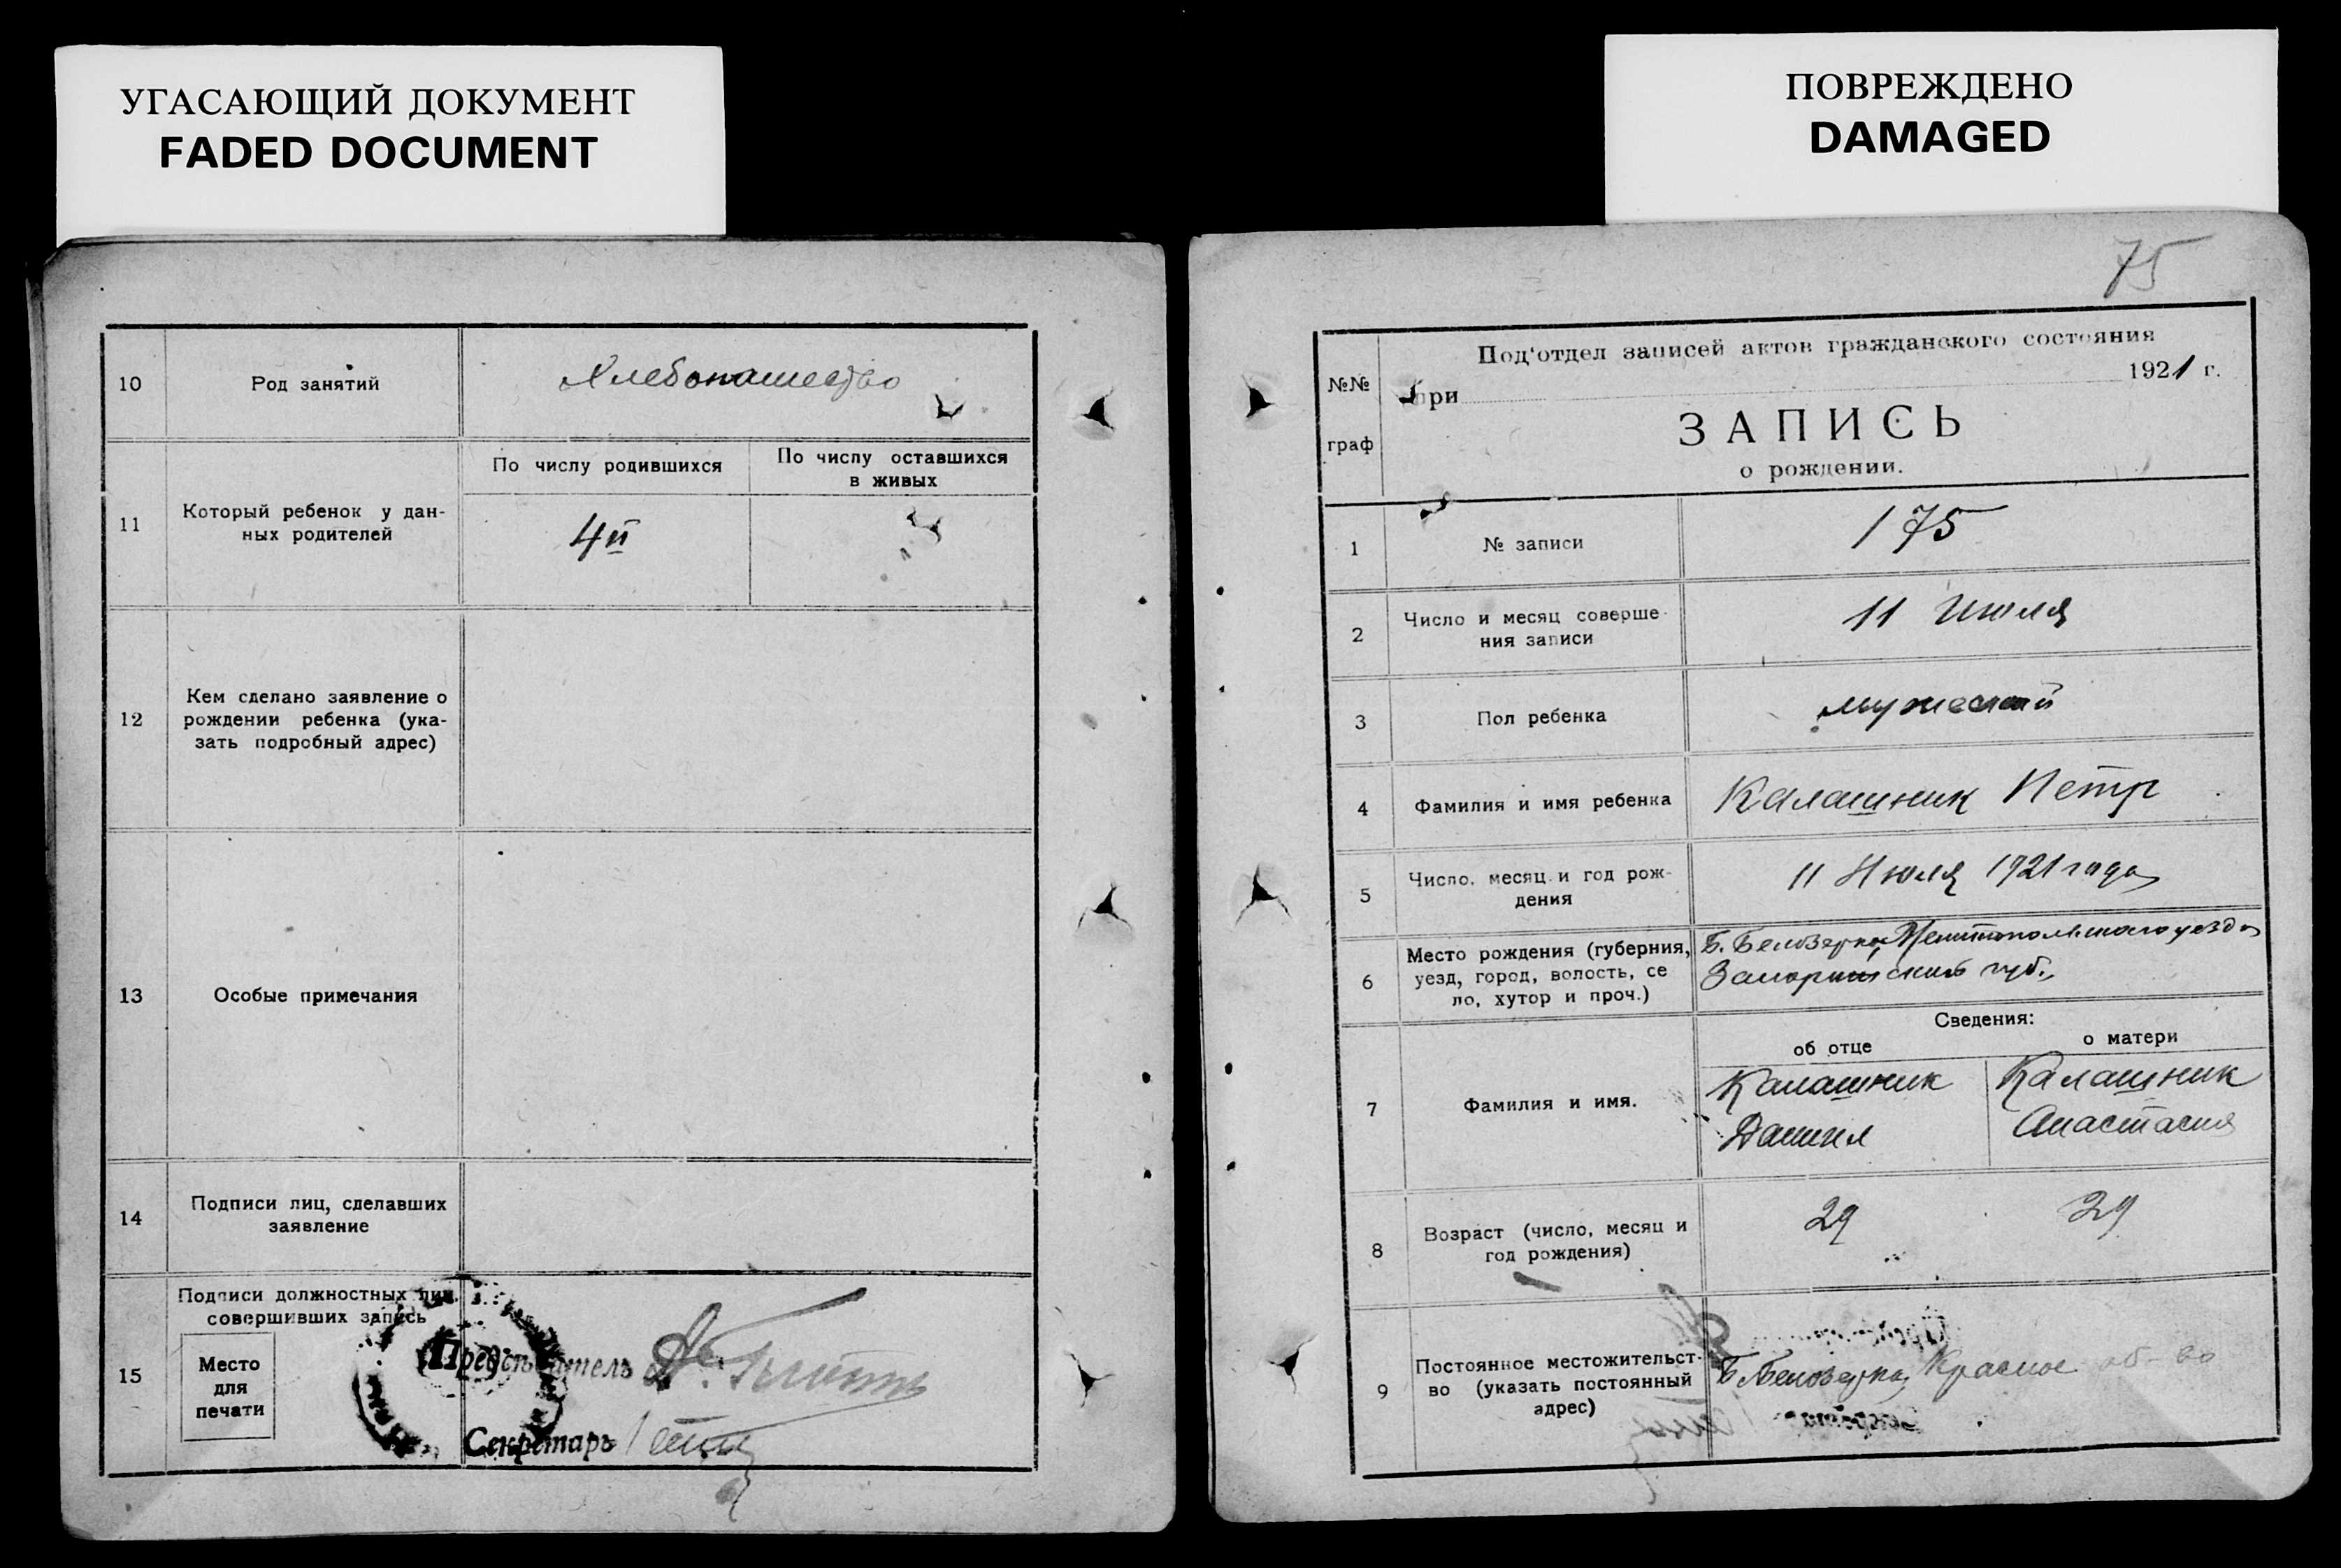 УГАСАЮЩИЙ ДОКУМЕНТ
FADED DOCUMENT
10
Род занятий
Хлебопашество
11
Который ребенок у дан-
ных родителей
По числу родившихся
По числу оставшихся
в живых
4й
12
Кем сделано заявление о
рождении ребенка (ука-
зать подробный адрес)
13
Особые примечания
14
Подписи лиц, сделавших
заявление
15
Подписи должностных лиц,
совершивших запись
Место
для
печати
Председатель
Секретарь
ПОВРЕЖДЕНО
DAMAGED
75
№№
граф
Под'отдел записей актов гражданского состояния
при
1921 г.
ЗАПИСЬ
о рождении.
1
№ записи
175
2
Число и месяц соверше-
ния записи
11 Июля
3
Пол ребенка
мужеский
4
Фамилия и имя ребенка
Калашник Петр
5
Число, месяц и год рож-
дения
11 Июля 1921 года
6
Место рождения (губерния,
уезд, город, волость, се
ло, хутор и проч.)
Б. Белозерка, Мелитопольского уезда
губ.
Сведения:
об отце
о матери
7
Фамилия и имя.
Калашник
Даниил
Калашник
Анастасия
8
Возраст (число, месяц и
год рождения)
29
29
9
Постоянное местожительст-
во (указать постоянный
адрес)
Б. Белозерка, Красное об-во